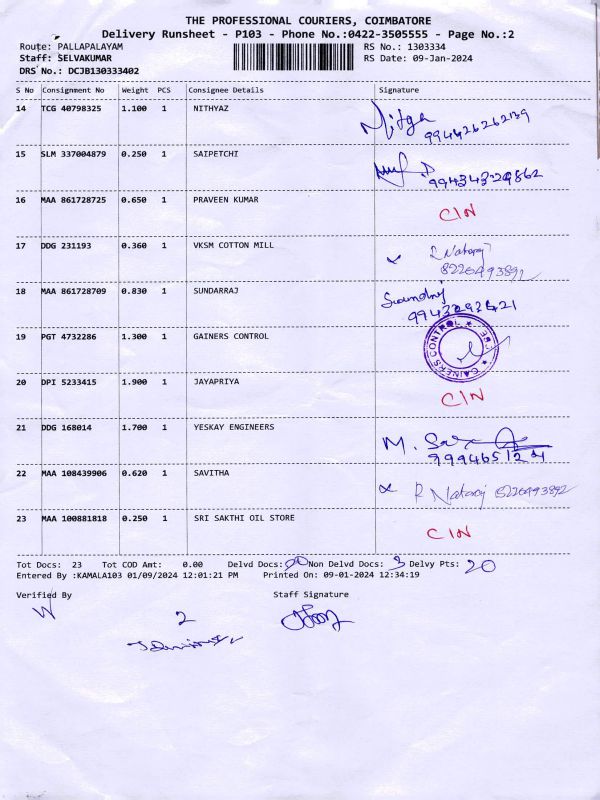 THE PROFESSIONAL COURIERS, COIMBATORE
Delivery Runsheet - P103 - Phone No.:0422-3505555 - Page No.:2
Route: PALLAPALAYAM RS No.: 1303334
Staff: SELVAKUMAR RS Date: 09-Jan-2024
DRS No.: DCJB130333402
S No Consignment No Weight PCS Consignee Details Signature
14 TCG 40798325 1.100 1 NITHYAZ
15 SLM 337004879 0.250 1 SAIPETCHI
99434329862
16 MAA 861728725 0.650 1 PRAVEEN KUMAR C/N
17 DDG 231193 0.360 1 VKSM COTTON MILL R Nataraj
8226493892
18 MAA 861728709 0.830 1 SUNDARRAJ
19 PGT 4732286 1.300 1 GAINERS CONTROL
20 DPI 5233415 1.900 1 JAYAPRIYA C/N
21 DDG 168014 1.700 1 YESKAY ENGINEERS M.
22 MAA 108439906 0.620 1 SAVITHA R Nataraj 8226493892
23 MAA 100881818 0.250 1 SRI SAKTHI OIL STORE C/N
Tot Docs: 23 Tot COD Amt: 0.00 Delvd Docs: 20 Non Delvd Docs: 3 Delvy Pts: 20
Entered By :KAMALA103 01/09/2024 12:01:21 PM Printed On: 09-01-2024 12:34:19
Verified By Staff Signature
2